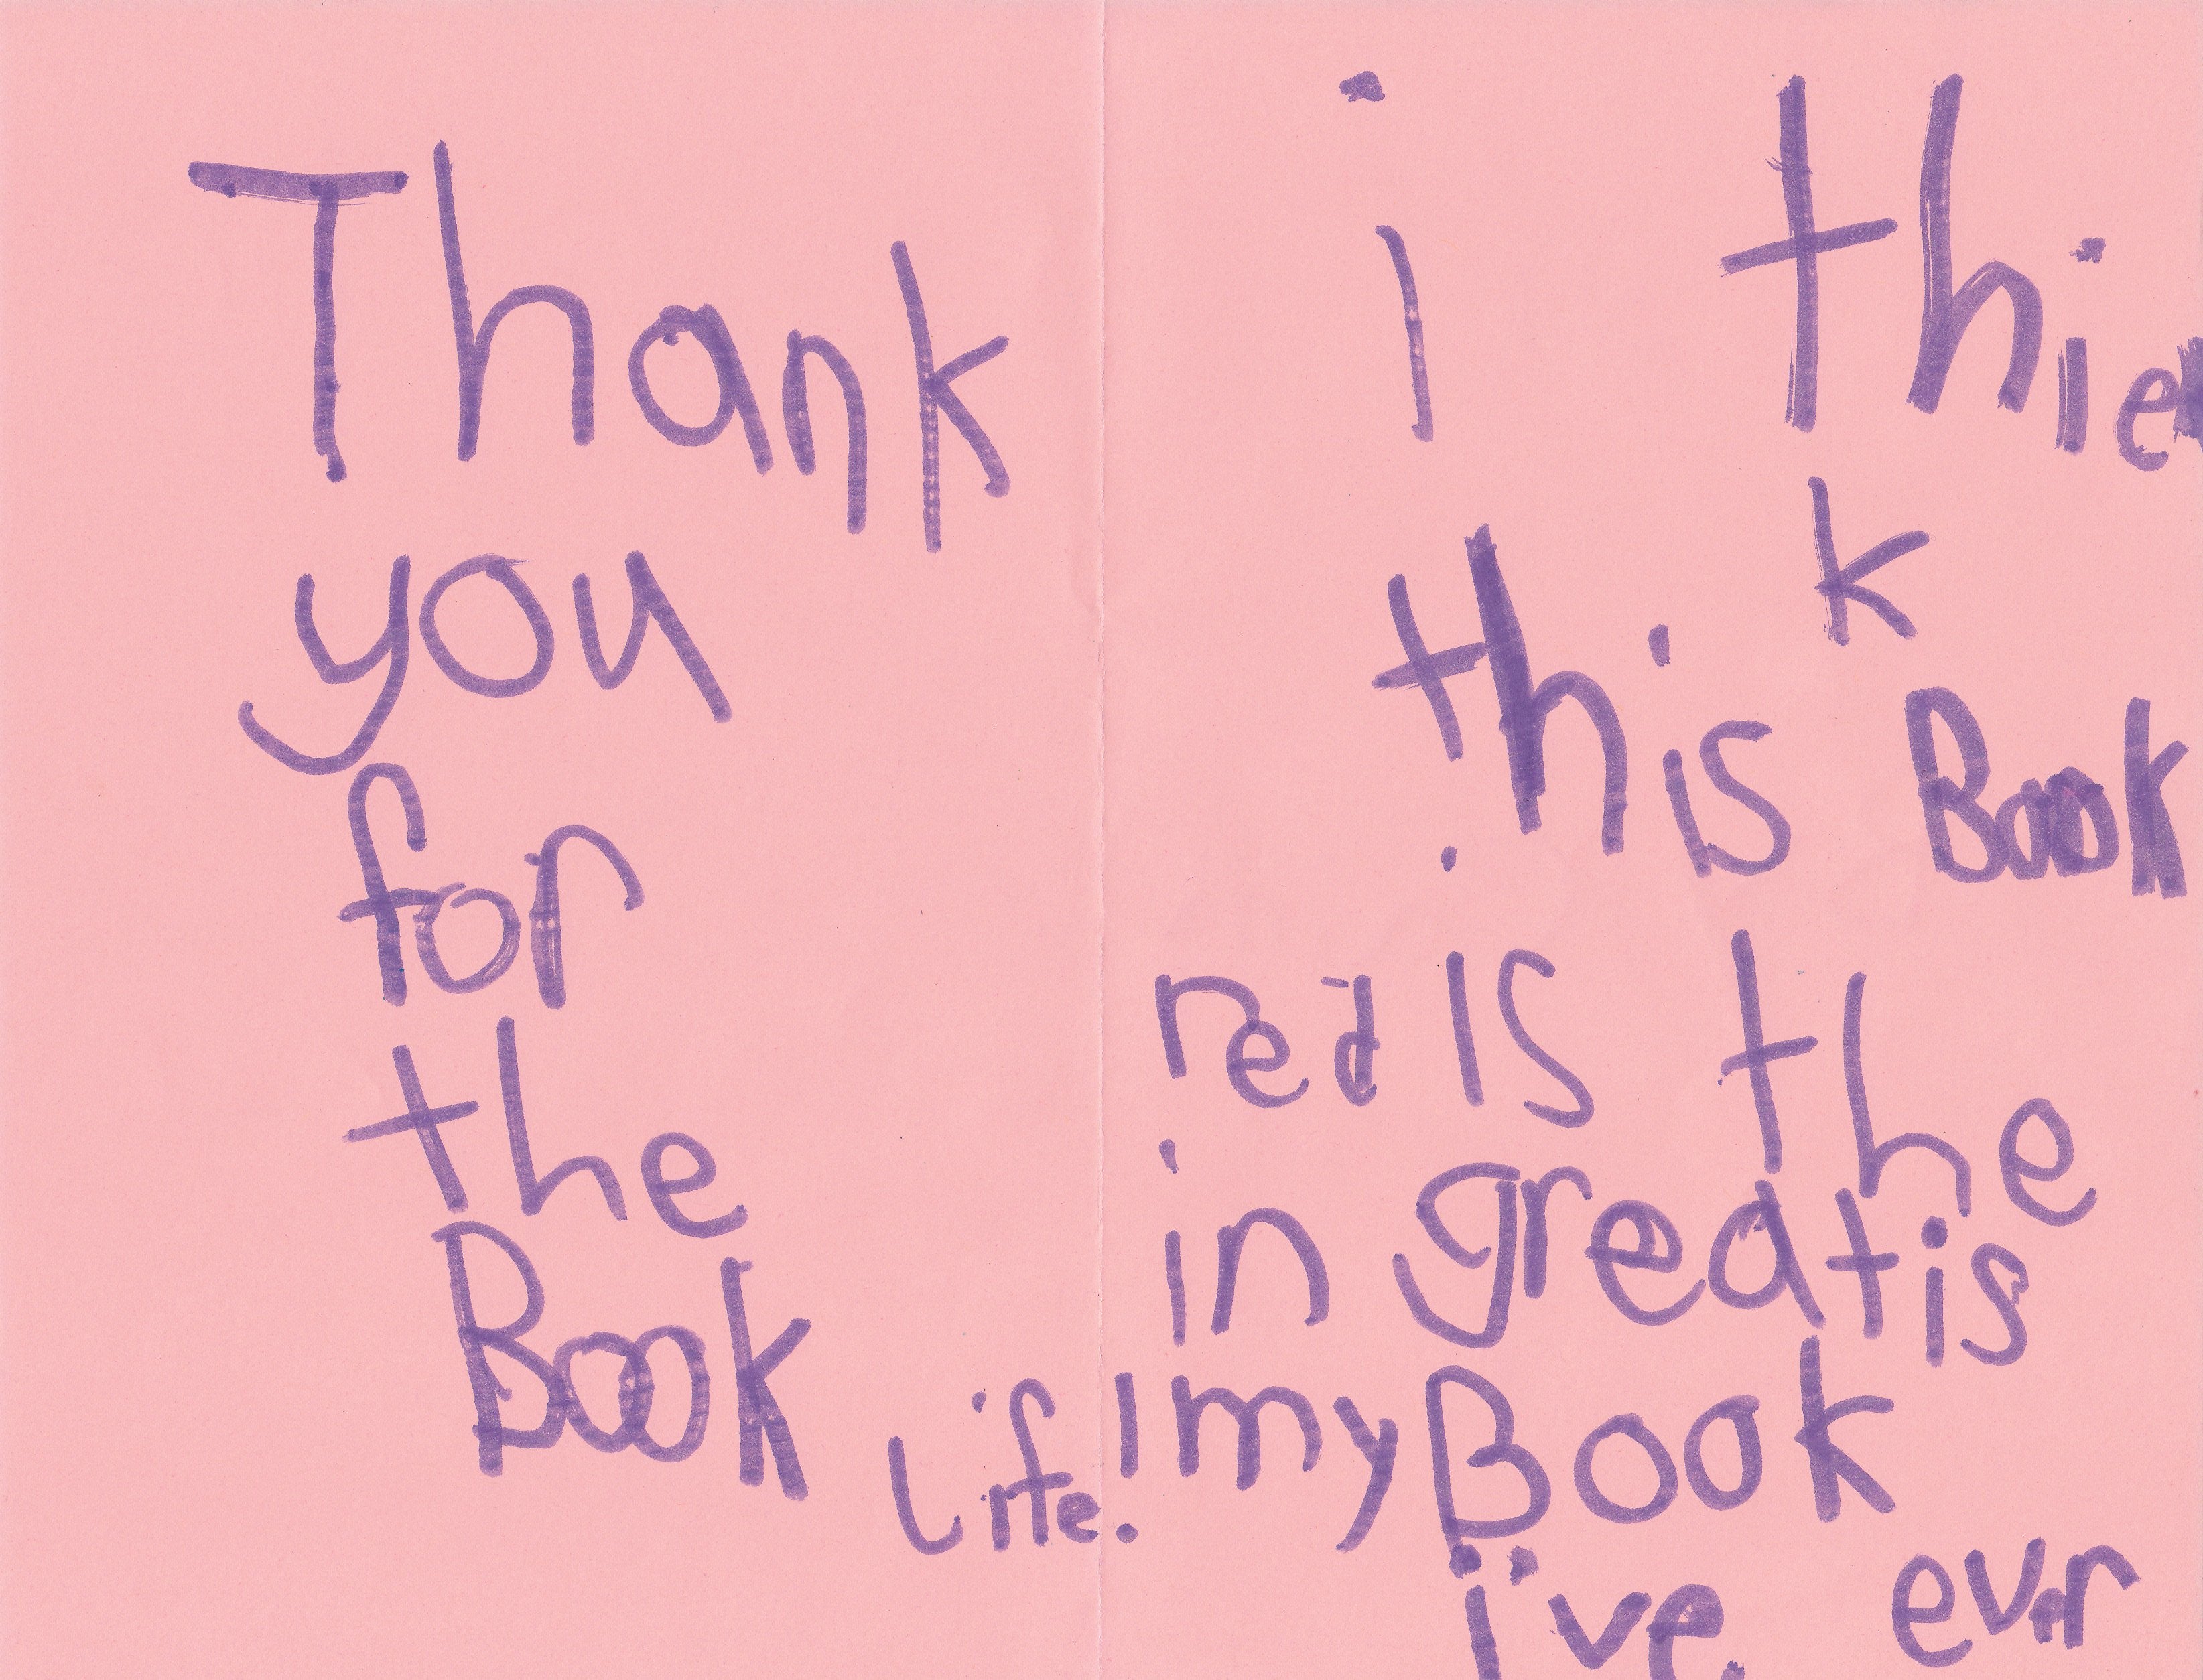 Thank
you
for
the
Book
i thie
k
this Book
is the
greatis
Book
i've ever
red
in
my
life!